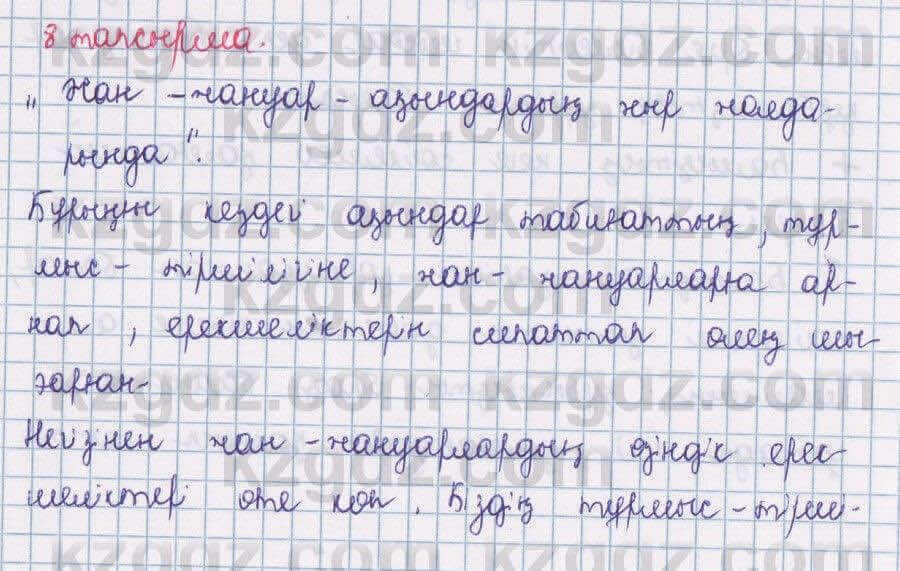 8 тапсырма.
„ Жан - жануар - ақындардың жыр жолда-
рында ".
Бұрынғы кездегі ақындар табиғаттың, тұр-
мыс - тіршілігіне, жан - жануарларға ар-
нап, ерекшеліктерін сипаттап өлең шы-
ғарған.
Негізінен жан - жануарлардың өзіндік ерек-
шеліктері өте көп. Біздің тұрмыс - тірші-
kzgdz.com